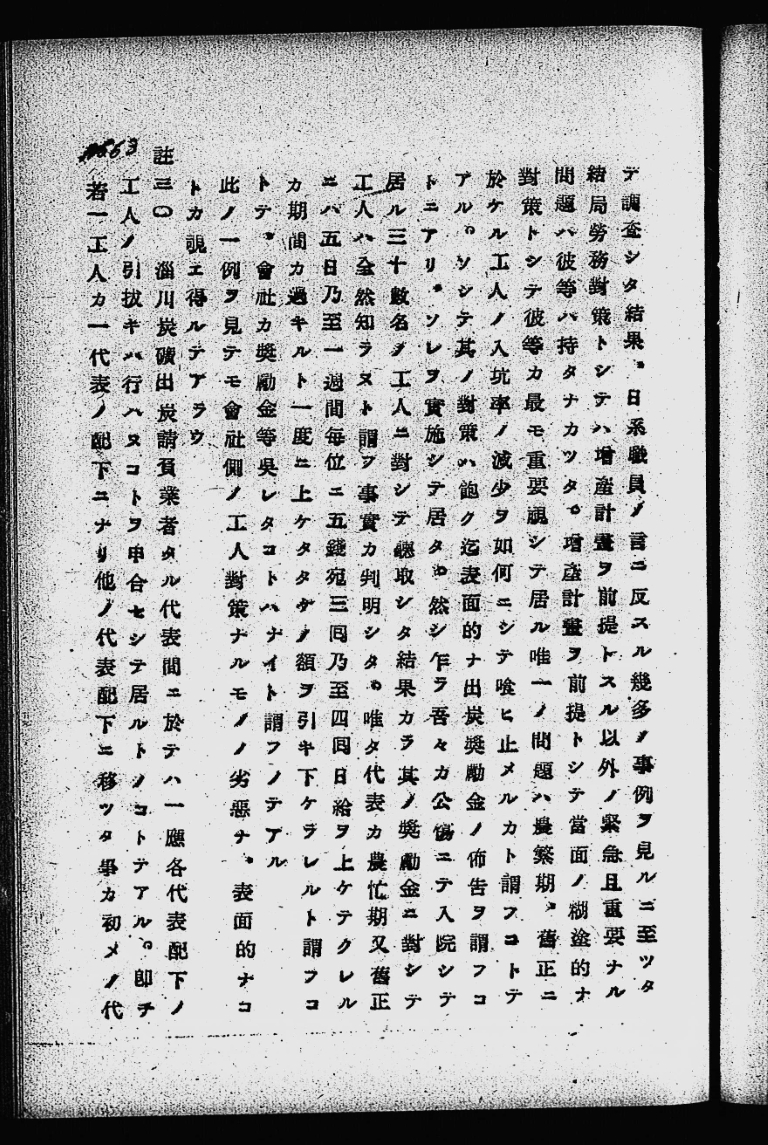 テ調査シタ結果。日系職員ノ言ニ反スル幾多ノ事例ヲ見ルニ至ツタ
結局勞務對策トシテハ增產計畫ヲ前提トスル以外ノ緊急且重要ナル
問題ハ彼等ハ持タナカツタ。增產計畫ヲ前提トシテ當面ノ糊塗的ナ
對策トシテ彼等カ最モ重要視シテ居ル唯一ノ問題ハ農繁期。舊正ニ
於ケル工人ノ入坑率ノ減少ヲ如何ニシテ喰ヒ止メルカト謂フコトテ
アル。ソシテ其ノ對策ハ飽ク迄表面的ナ出炭奬勵金ノ佈告ヲ謂フコ
トニアリ。ソレヲ實施シテ居タ。然シ乍ラ吾々カ公傷ニテ入院シテ
居ル三十數名ノ工人ニ對シテ聽取シタ結果カラ其ノ奬勵金ニ對シテ
工人ハ全然知ラヌト謂フ事實カ判明シタ。唯タ代表カ農忙期又舊正
ニハ五日乃至一週間每位ニ五錢宛三囘乃至四囘日給ヲ上ケテクレル
カ期間カ過キルト一度ニ上ケタタケノ額ヲ引キ下ケラレルト謂フコ
トテ。會社カ奬勵金等吳レタコトハナイト謂フノテアル
此ノ一例ヲ見テモ會社側ノ工人對策ナルモノノ劣惡ナ。表面的ナコ
トカ覗エ得ルテアラウ
註三〇 淄川炭礦出炭請負業者タル代表間ニ於テハ一應各代表配下ノ
工人ノ引拔キハ行ハヌコトヲ申合セシテ居ルトノコトテアル。卽チ
若一工人カ一代表ノ配下ニナリ他ノ代表配下ニ移ツタ擧カ初メノ代